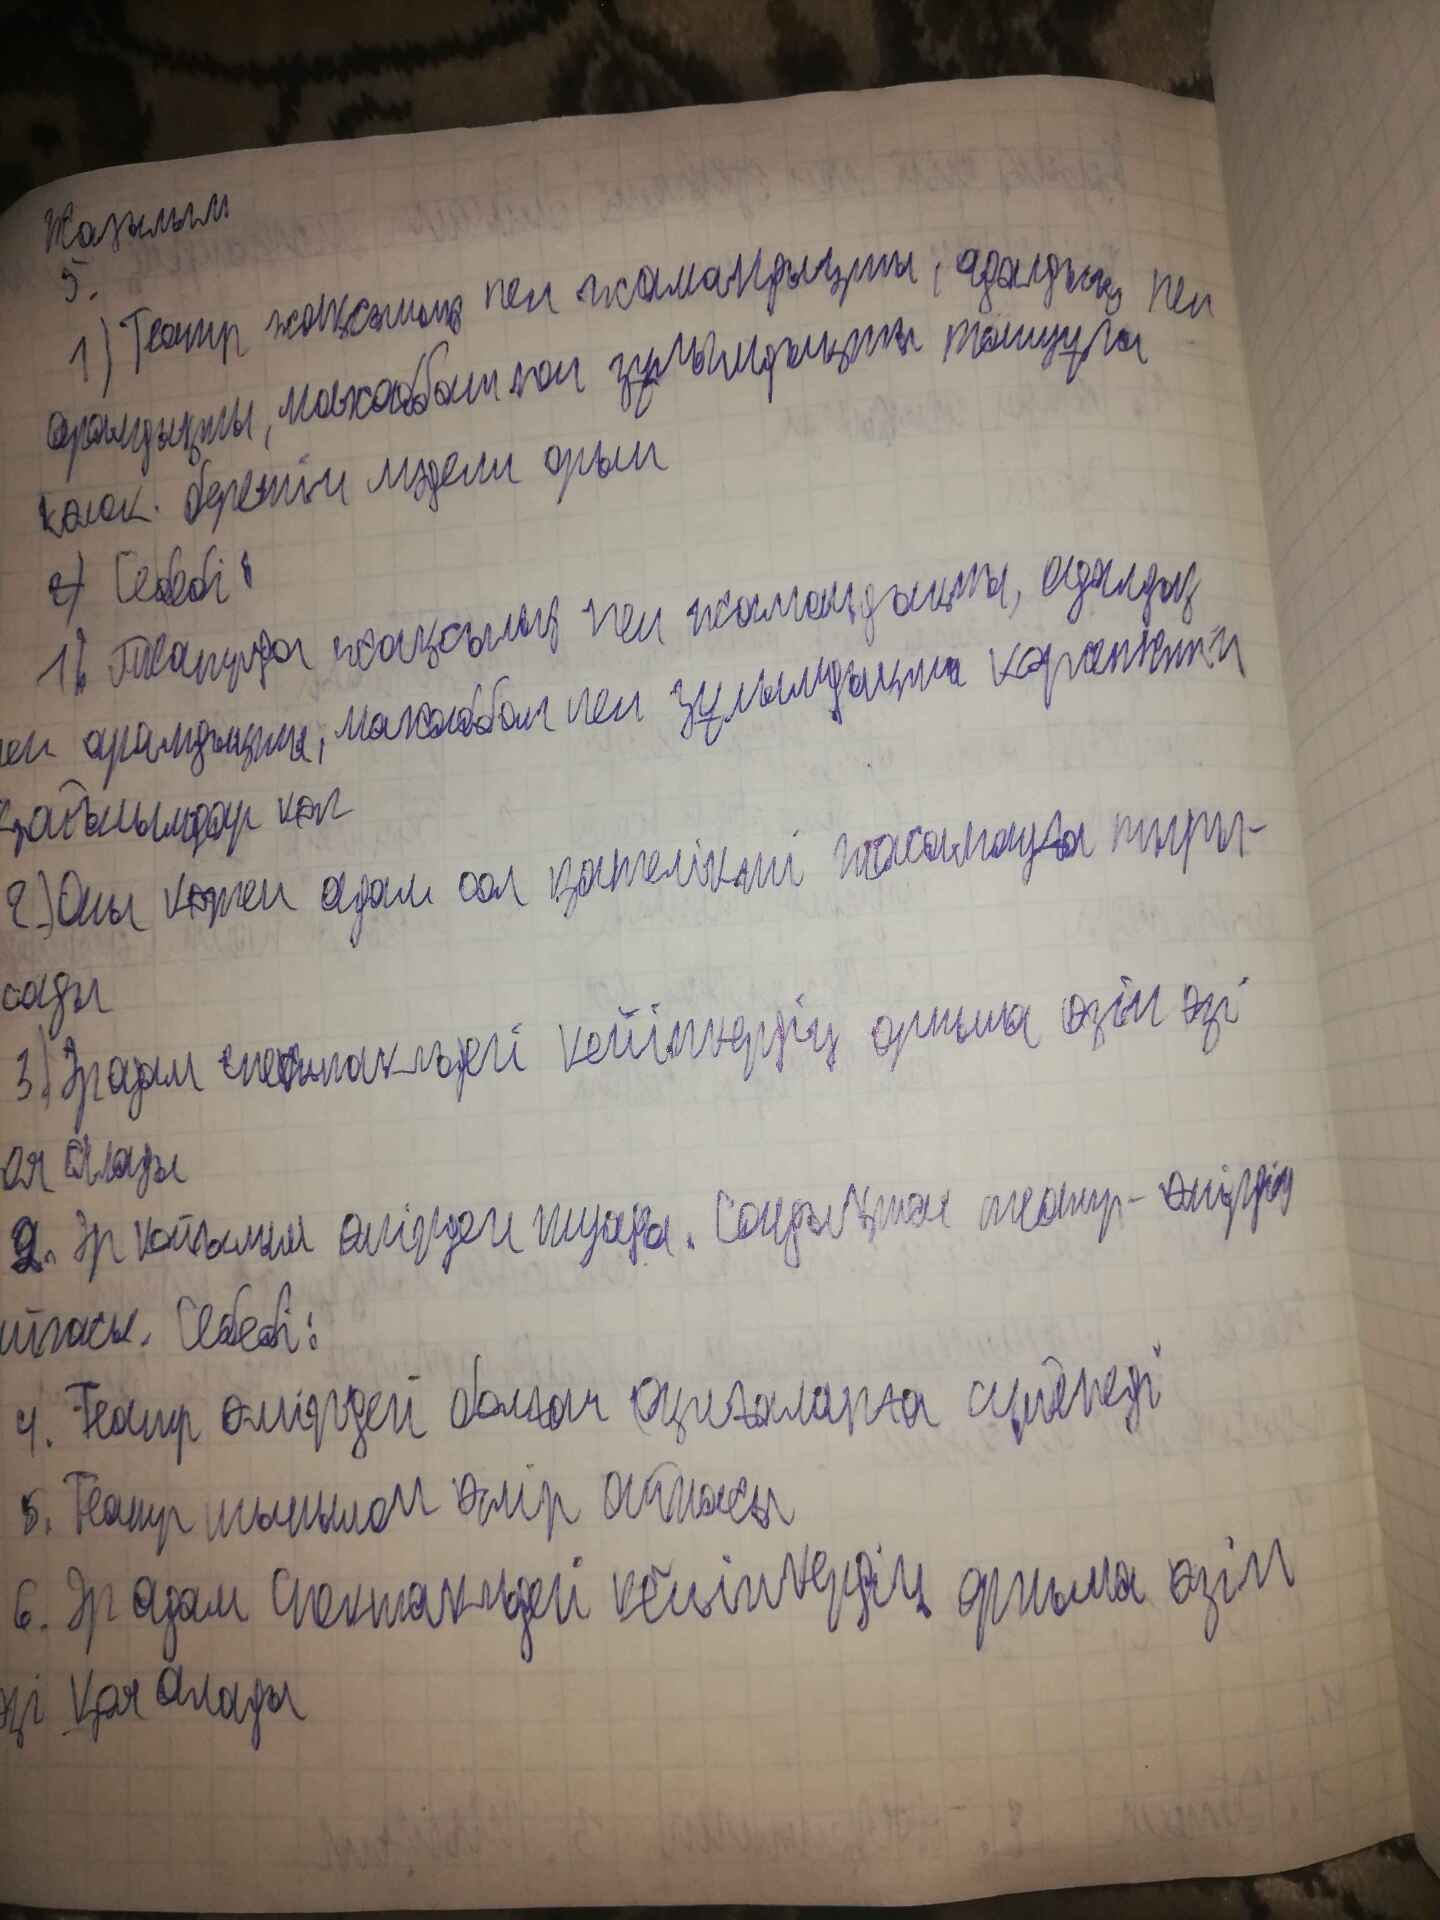 Жазылым
5.
1) Театр жақсылық пен жамандықты, адалдық пен
арамдықты, махаббат пен зұлымдықты тануға
көмек беретін мәдени орын
2) Себебі:
1) Театрда жақсылық пен жамандықты, адалдық
пен арамдықты, махаббат пен зұлымдықты көрсететін
қойылымдар көп
2) Оны көрген адам сол қателікті жасамауға тыры-
сады
3) Әр адам спектакльдегі кейіпкердің орнына өзін өзі
қоя алады
2. Әр қойылым өмірден туады. Сондықтан театр - өмірдің
айнасы. Себебі:
4. Театр өмірдей болған оқиғаларға сүйенеді
5. Театр шынымен өмір айнасы
6. Әр адам спектакльдей кейіпкердің орнына өзін
өзі қоя алады